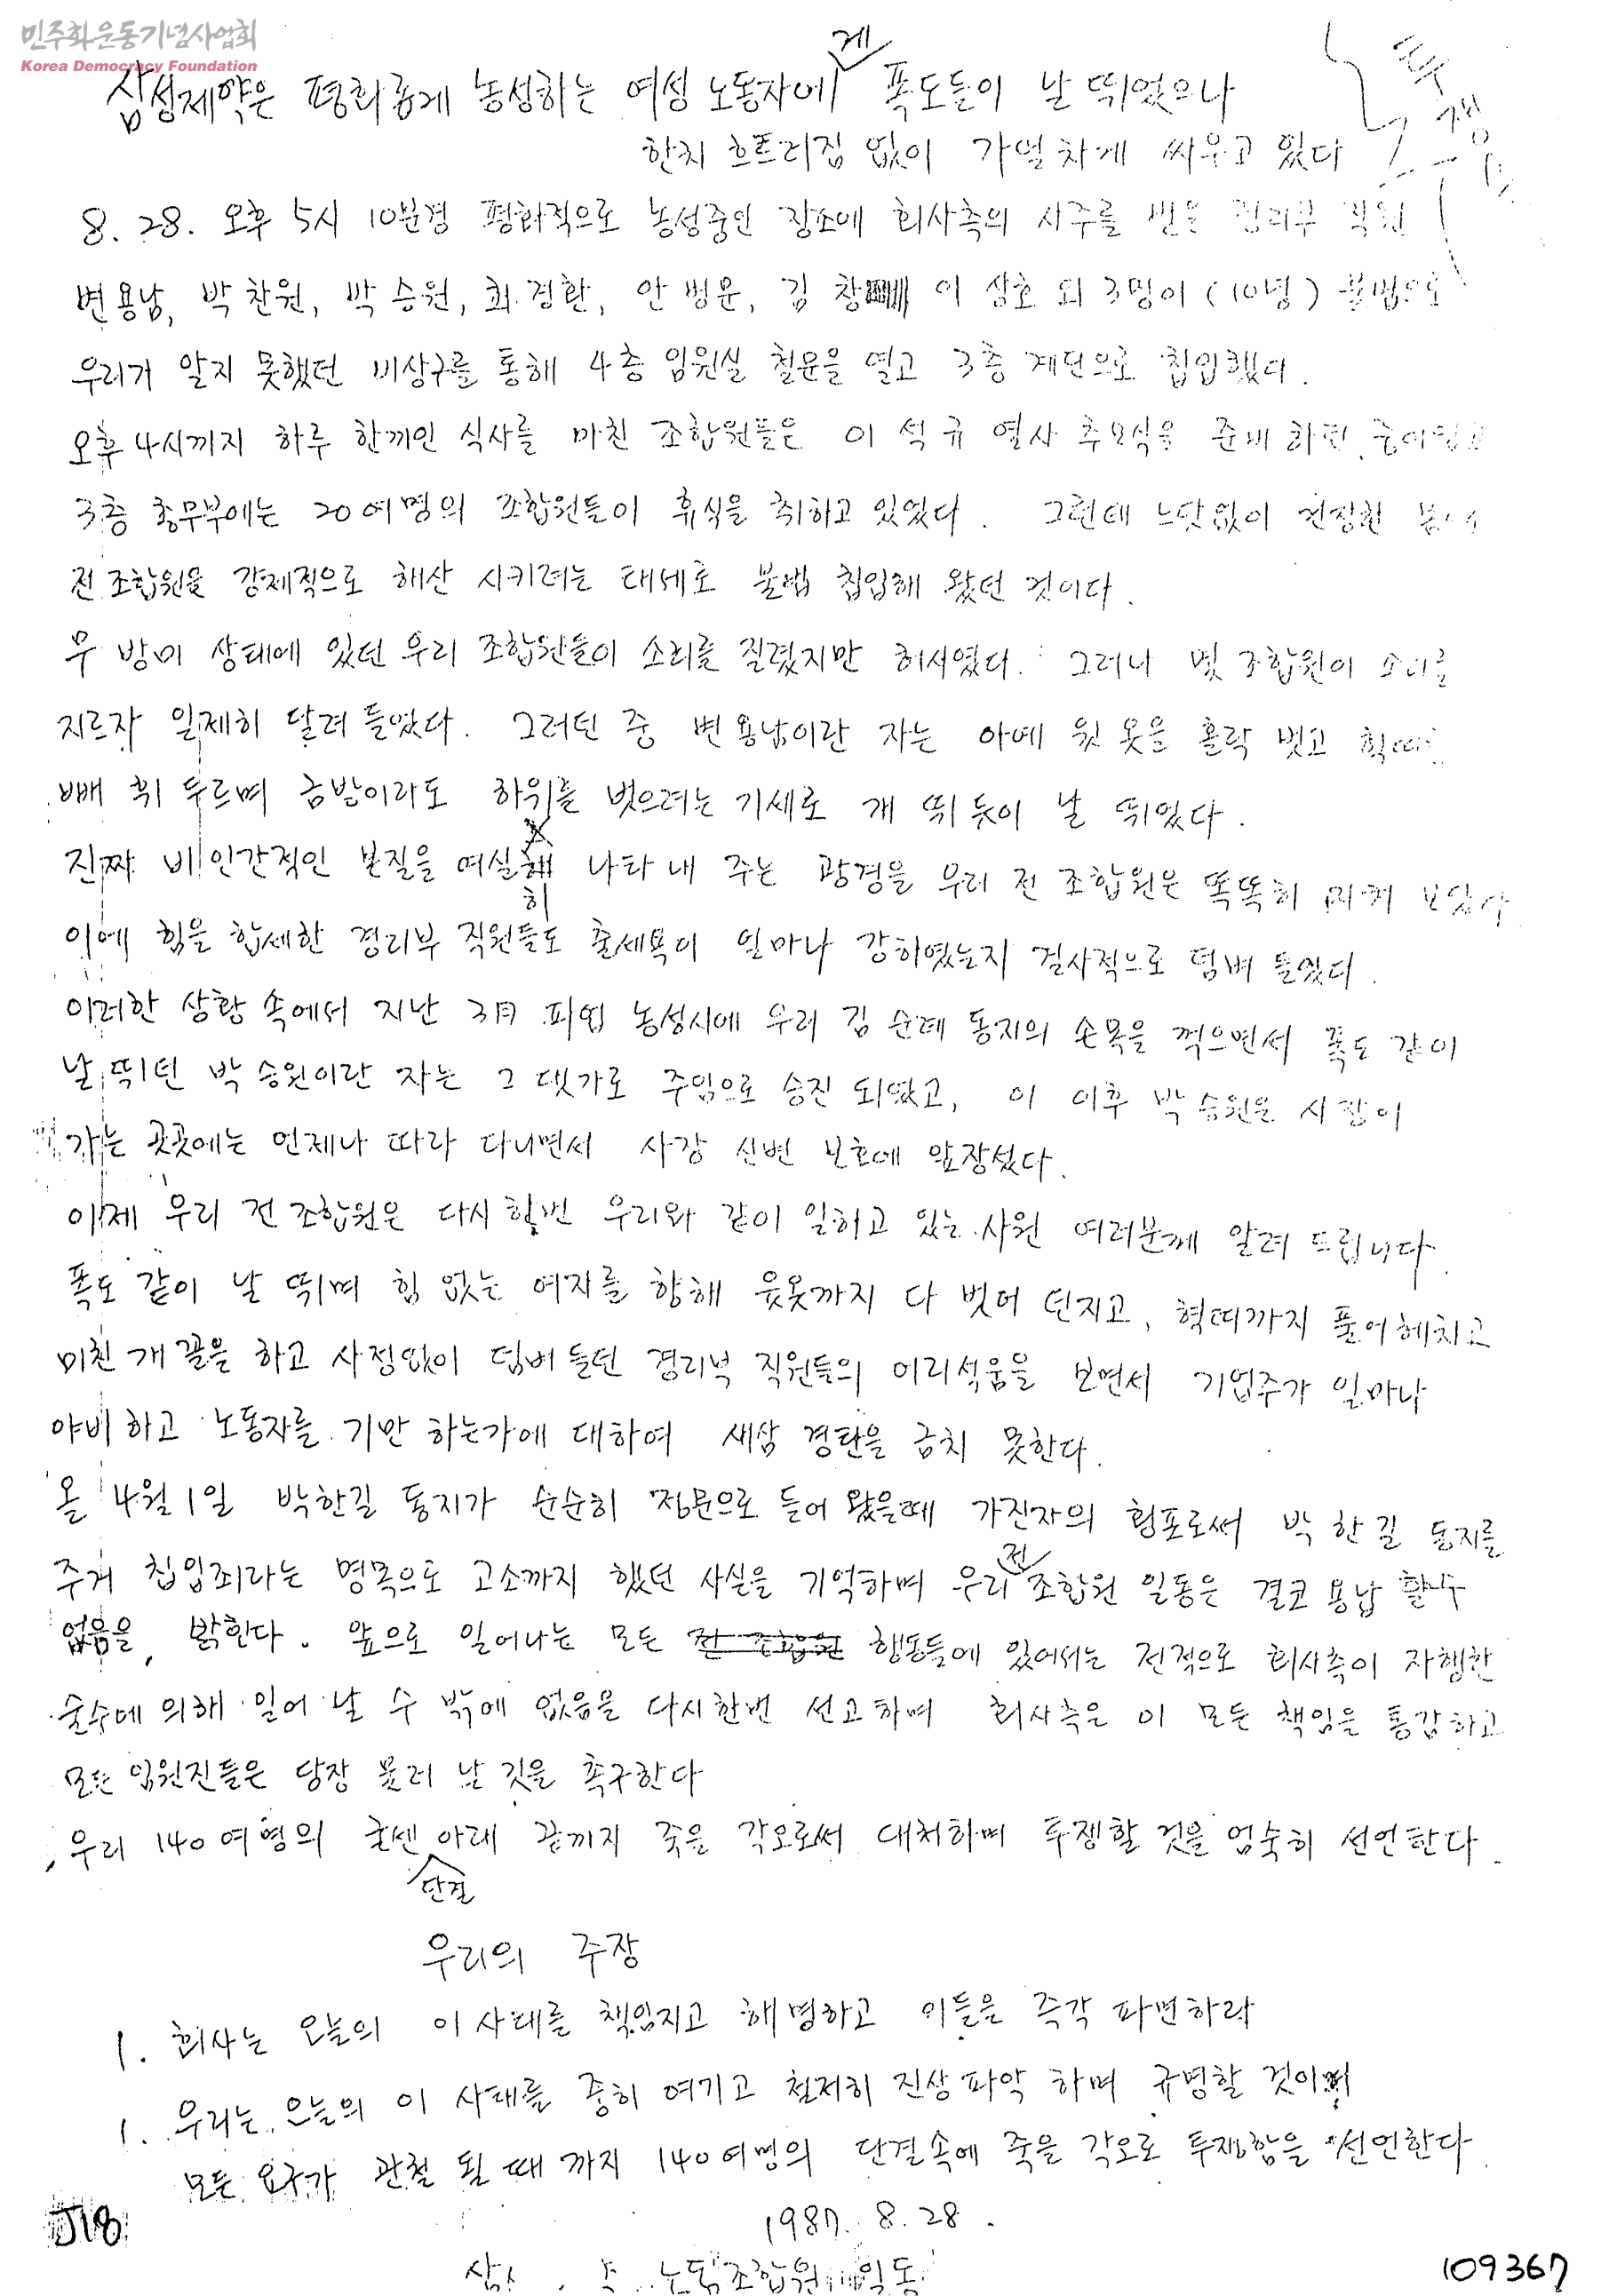 민주화운동기념사업회
Korea Democracy Foundation
삼성제약은 평화롭게 농성하는 여성 노동자에게 폭도들이 날 뛰었으나
한치 흐트러짐 없이 가열차게 싸우고 있다
투쟁
8. 28. 오후 5시 10분경 평화적으로 농성중인 장소에 회사측의 사주를 받은 경리부 직원
변용남, 박찬원, 박승원, 최경환, 안병운, 김창 이상호 외 3명이 (10명) 불법으로
우리가 알지 못했던 비상구를 통해 4층 임원실 철문을 열고 3층 계단으로 침입했다.
오후 4시까지 하루 한끼인 식사를 마친 조합원들은 이석규 열사 추모식을 준비하던 중이었고
3층 총무부에는 20여명의 조합원들이 휴식을 취하고 있었다. 그런데 느닷없이 건장한
전 조합원을 강제적으로 해산 시키려는 태세로 불법 침입해 왔던 것이다.
무방비 상태에 있던 우리 조합원들이 소리를 질렀지만 허사였다. 그러나 몇 조합원이 소리를
지르자 일제히 달려 들었다. 그러던 중 변용남이란 자는 아예 윗옷을 홀락 벗고 혁띠를
빼 휘두르며 금방이라도 하위를 벗으려는 기세로 개 뛰듯이 날 뛰었다.
진짜 비인간적인 본질을 여실히 나타내 주는 광경을 우리 전 조합원은 똑똑히 지켜 보았다
이에 힘을 합세한 경리부 직원들도 출세욕이 얼마나 강하였는지 결사적으로 덤벼 들었다.
이러한 상황 속에서 지난 3月 파업 농성시에 우리 김순례 동지의 손목을 꺽으면서 폭도 같이
날 뛰던 박승원이란 자는 그 댓가로 주임으로 승진 되었고, 이 이후 박승원은 사장이
가는 곳곳에는 언제나 따라 다니면서 사장 신변 보호에 앞장섰다.
이제 우리 전 조합원은 다시 한번 우리와 같이 일하고 있는 사원 여러분께 알려 드립니다.
폭도 같이 날 뛰며 힘 없는 여자를 향해 윳옷까지 다 벗어 던지고, 혁띠까지 풀어헤치고
미친 개꼴을 하고 사정없이 덤벼 들던 경리부 직원들의 어리석움을 보면서 기업주가 얼마나
야비하고 노동자를 기만 하는가에 대하여 새삼 경탄을 금치 못한다.
올 4월 1일 박한길 동지가 순순히 정문으로 들어 왔을때 가진자의 횡포로써 박한길 동지를
주거 침입죄라는 명목으로 고소까지 했던 사실을 기억하며 우리 전 조합원 일동은 결코 용납 할수
없음을, 밝힌다. 앞으로 일어나는 모든 전 조합원 행동들에 있어서는 전적으로 회사측이 자행한
술수에 의해 일어 날 수 밖에 없음을 다시한번 선고하며 회사측은 이 모든 책임을 통감하고
모든 임원진들은 당장 물러 날 것을 촉구한다
우리 140여명의 굳센 단결 아래 끝까지 죽을 각오로써 대처하며 투쟁할 것을 엄숙히 선언한다.
우리의 주장
1. 회사는 오늘의 이 사태를 책임지고 해명하고 이들을 즉각 파면하라
1. 우리는 오늘의 이 사태를 중히 여기고 철저히 진상파악 하며 규명할 것이며
모든 요구가 관철 될 때 까지 140여명의 단결속에 죽을 각오로 투쟁함을 선언한다.
1987. 8. 28.
노동조합원 일동
J18
109367